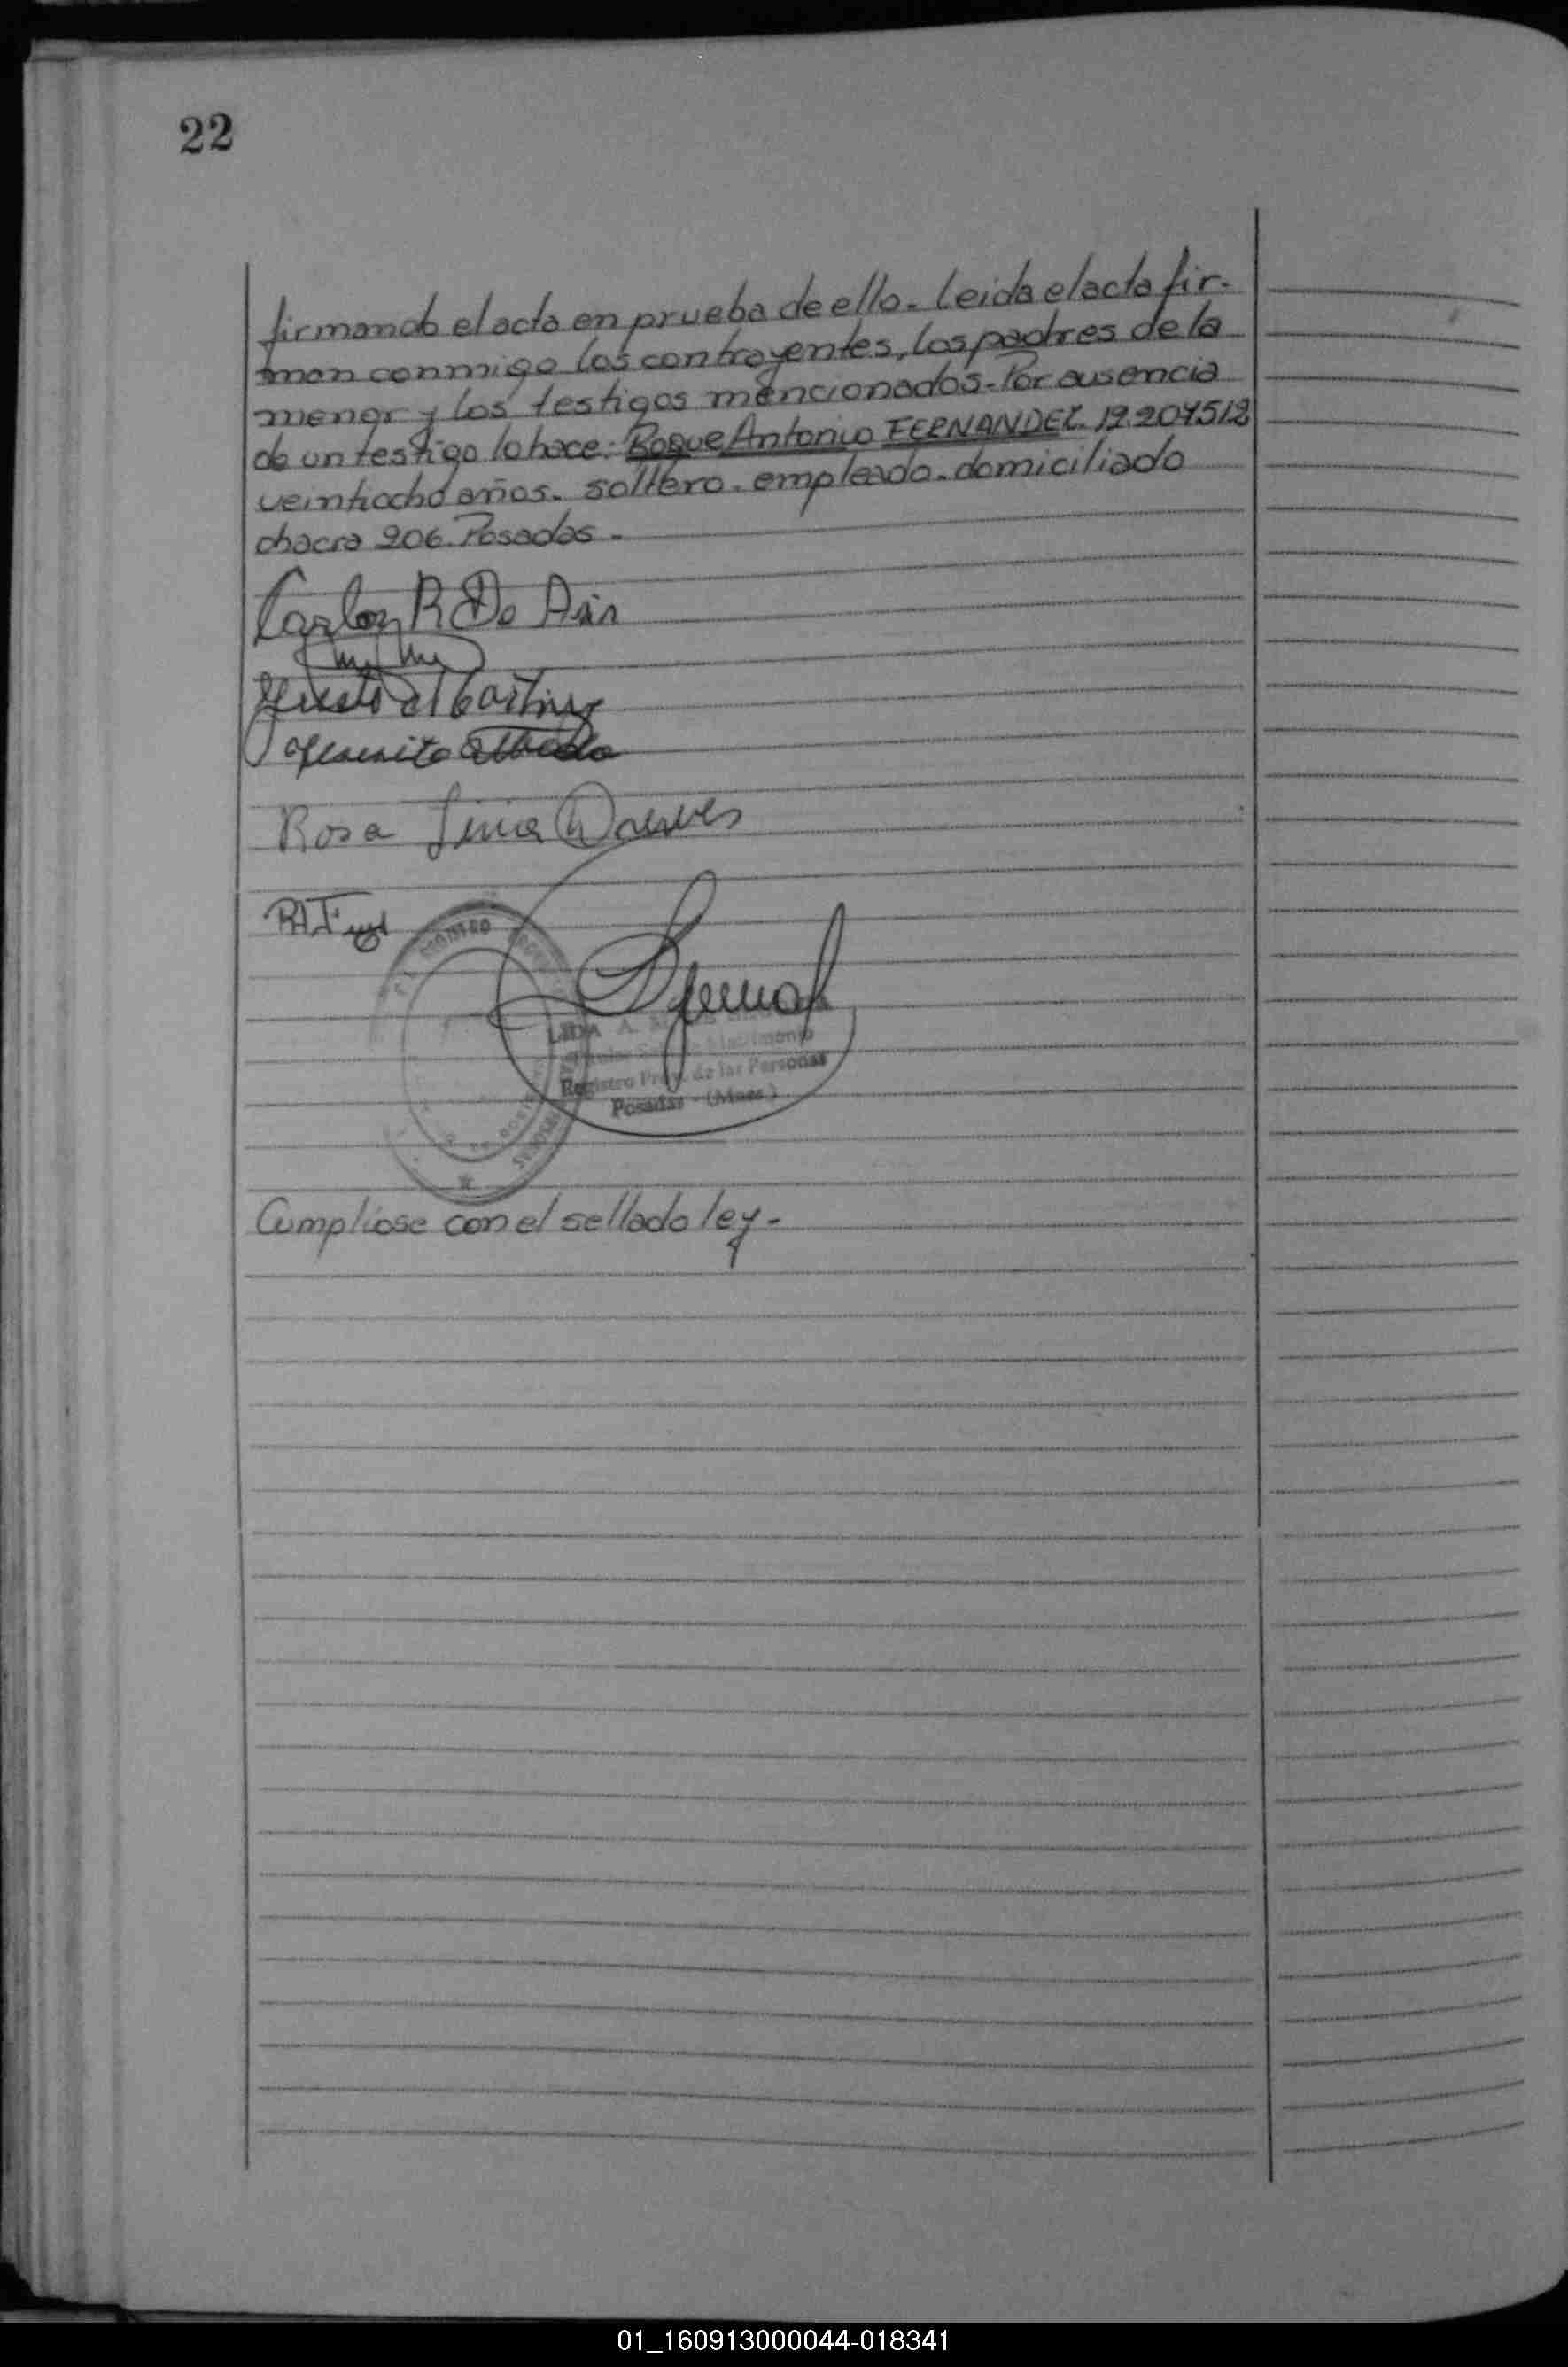 22
firmando el acta en prueba de ello. leida el acta fir-
man conmigo los contrayentes, los padres de la
menor y los testigos mencionados. Por ausencia
de un testigo lo hace: Roque Antonio FERNANDEZ. 12.207512
veintiocho años. soltero. empleado. domiciliado
chacra 206. Posadas.
Carlos R Do
Rosa
LIDIA A.
Matrimonio
Registro Prov. de las Personas
Posadas - (Mnes.)
Cumpliose con el sellado ley.
01_160913000044-018341